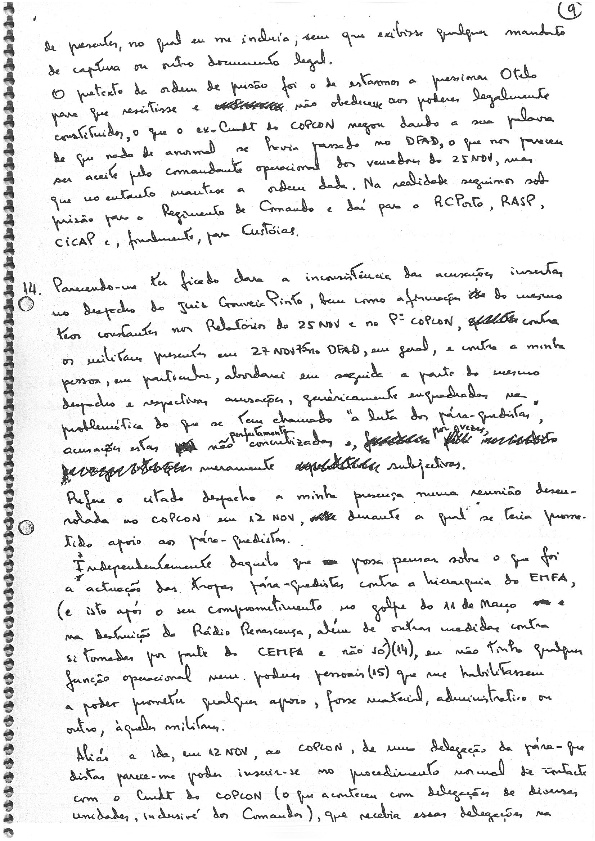 9
de presentes, no qual eu me incluia, sem que exibisse qualquer mandato
de captura ou outro documento legal.
O pretexto da ordem de prisão foi o de estarmos a pressionar Otelo
para que resistisse e não obedecesse aos poderes legalmente
constituidos, o que o ex-Cmdt do COPCON negou dando a sua palavra
de que nada de anormal se havia passado no DFAD, o que nos pareceu
ser aceite pelo comandante operacional dos vencedores do 25NOV, mas
que no entanto manteve a ordem dada. Na realidade seguimos sob
prisão para o Regimento de Comandos e daí para o RCPorto, RASP,
CICAP e, finalmente, para Custóias.
14. Parecendo-me ter ficado clara a inconsistência das acusações insertas
no despacho do Juiz Gouveia Pinto, bem como afirmações do mesmo
teor constantes nos Relatórios do 25NOV e no Pº COPCON, contra
os militares presentes em 27NOV75 no DFAD, em geral, e contra a minha
pessoa, em particular, abordarei em seguida a parte do mesmo
despacho e respectivas acusações, genéricamente enquadradas na
problemática do que se tem chamado "a luta dos pára-quedistas",
acusações estas não perfeitamente concretizadas e, por vezes,
meramente subjectivas.
Refere o citado despacho a minha presença numa reunião desen-
rolada no COPCON em 12 NOV, durante a qual se teria prome-
tido apoio aos pára-quedistas.
Independentemente daquilo que possa pensar sobre o que foi
a actuação das tropas pára-quedistas contra a hierarquia do EMFA,
(e isto após o seu comprometimento no golpe do 11 de Março e
na destruição da Rádio Renascença, além de outras medidas contra
si tomadas por parte do CEMFA e não só)(14), eu não tinha qualquer
função operacional nem poderes pessoais (15) que me habilitassem
a poder prometer qualquer apoio, fosse material, administrativo ou
outro, àqueles militares.
Aliás a ida, em 12 NOV, ao COPCON, de uma delegação de pára-que
distas parece-me poder inserir-se no procedimento normal de contacto
com o Cmdt do COPCON (o que aconteceu com delegações de diversas
unidades, inclusivé dos Comandos), que recebia essas delegações na